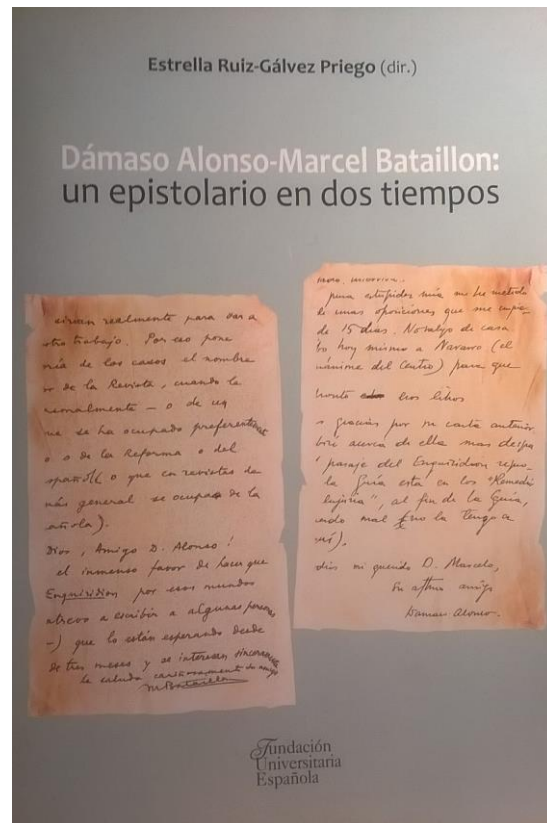 Estrella Ruiz-Gálvez Priego (dir.)
Dámaso Alonso-Marcel Bataillon:
un epistolario en dos tiempos
sirvan realmente para dar a
otro trabajo. Por eso pone
ría de los casos el nombre
or de la Revista, cuando la
normalmente — o de un
ue se ha ocupado preferentemente
o o de la Reforma o del
español (o que en revistas de
más general se ocupase de la
añola).
Dios, Amigo D. Alonso!
el inmenso favor de hacer que
Enquiridion por esos mundos
atrevo a escribir a algunas personas
—) que lo están esperando desde
de tres meses y se interesan sinceramente
le saluda cariñosamente su amigo
M Bataillon
para estupidez mía me he metido
de unas oposiciones que me
de 15 días. No salgo de casa
bo hoy mismo a Navarro (el
ánime del Centro) para que
pronto esos libros
s gracias por su carta anterior.
biré acerca de ella mas
pasaje del Enquiridion
la Guía está en los "Remedi
injuria", al fin de la Guía,
ndo mal (no la tengo a
uí).
dios mi querido D. Marcelo,
su affmo amigo
Damaso Alonso.
Fundación
Universitaria
Española